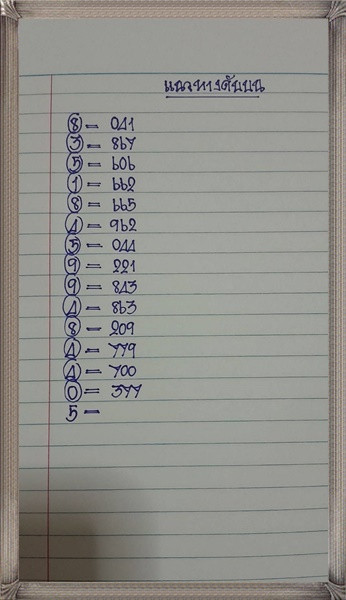 แนวทางดับบน
8 = 041
3 = 867
5 = 606
1 = 662
8 = 665
4 = 962
5 = 044
9 = 221
9 = 843
4 = 863
8 = 209
4 = 779
4 = 700
0 = 377
5 =